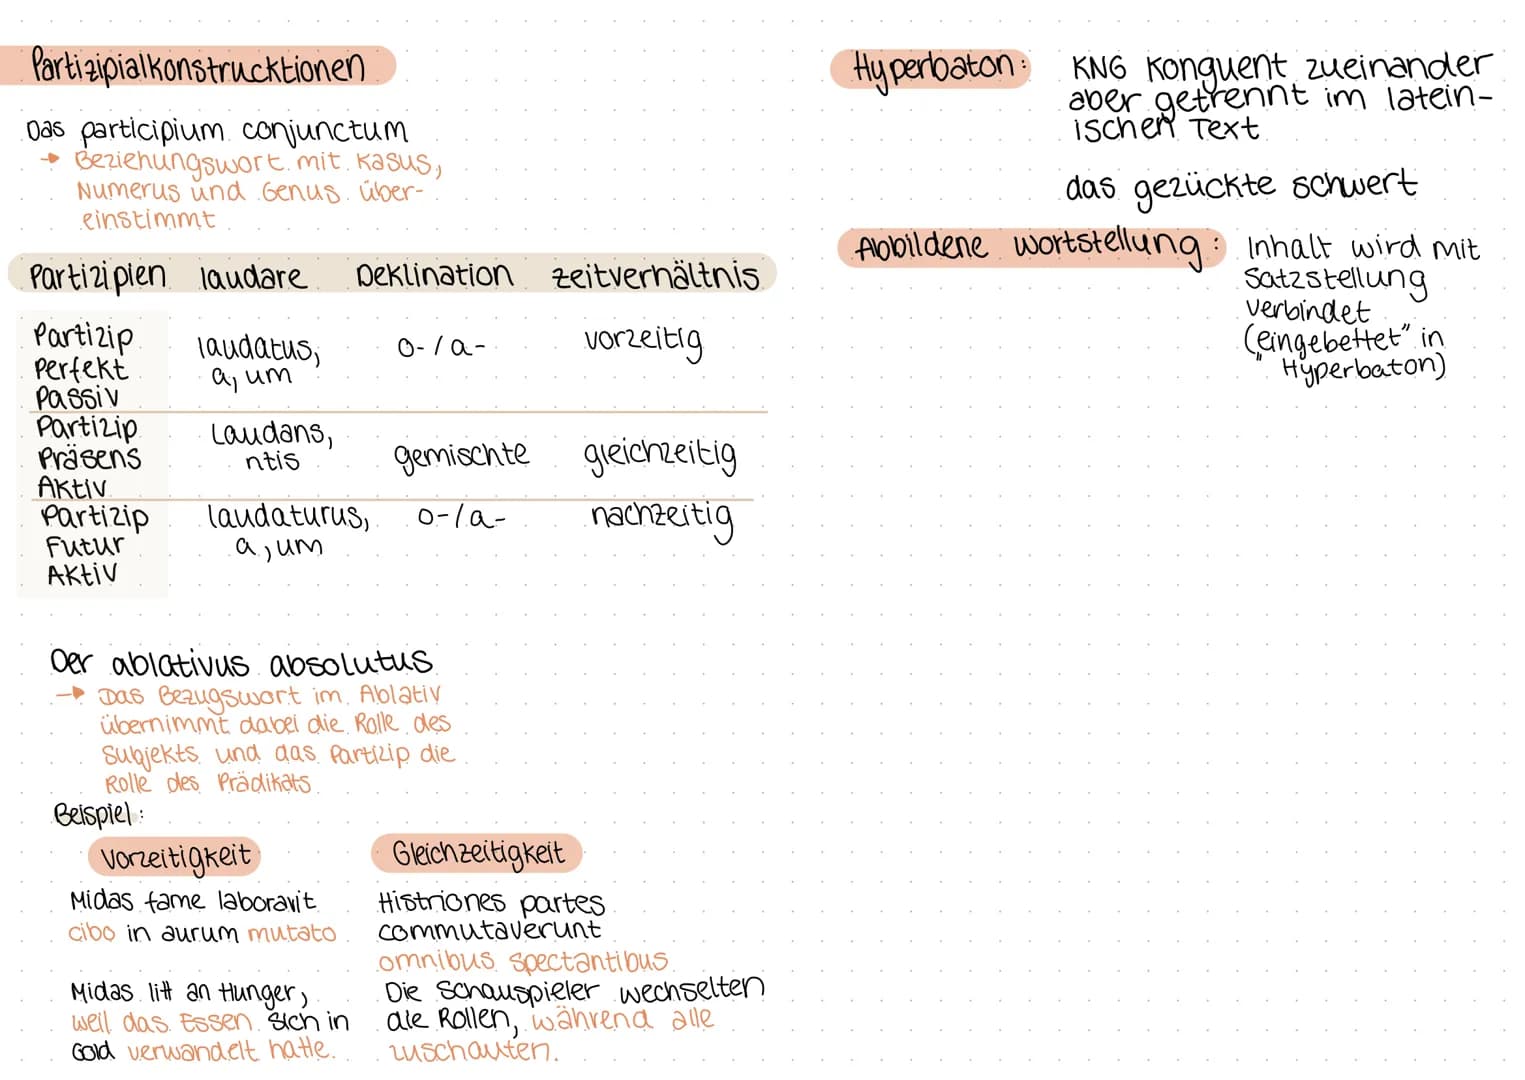 Partizipialkonstrucktionen
Das participium conjunctum
→ Beziehungswort mit Kasus,
Numerus und Genus über-
einstimmt
Partizipien laudare Deklination zeitverhältnis
Partizip
Perfekt
Passiv
laudatus,
a, um
o-/a-
vorzeitig
Partizip
Präsens
Aktiv
Laudans,
ntis
gemischte
gleichzeitig
Partizip
Futur
Aktiv
laudaturus,
a, um
o-/a-
nachzeitig
Der ablativus absolutus
→ Das Bezugswort im Ablativ
übernimmt dabei die Rolle des
Subjekts und das Partizip die
Rolle des Prädikats
Beispiel:
Vorzeitigkeit
Midas fame laboravit
cibo in aurum mutato
Midas litt an Hunger,
weil das Essen sich in
Gold verwandelt hatte.
Gleichzeitigkeit
Histriones partes
commutaverunt
omnibus spectantibus
Die Schauspieler wechselten
die Rollen, während alle
zuschauten.
Hyperbaton: KNG Konguent zueinander
aber getrennt im latein-
ischen Text
das gezückte schwert
Abbildene wortstellung: Inhalt wird mit
Satzstellung
verbindet
(„eingebettet" in
Hyperbaton)